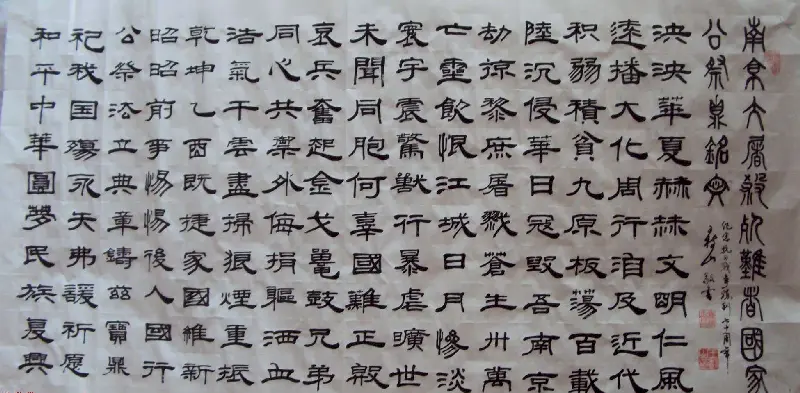 南京大屠殺死難者國家
公祭鼎銘文
泱泱華夏赫赫文明仁風
遠播大化周行洎及近代
积弱積貧九原板蕩百載
陸沉侵華日寇毀吾南京
劫掠黎庶屠戮蒼生卅萬
亡霊飲恨江城日月慘淡
寰宇震驚獸行暴虐曠世
未聞同胞何辜國難正殷
哀兵奮起金戈鼉鼓兄弟
同心共禦外侮捐軀洒血
浩氣干雲盡掃狼煙重振
乾坤乙酉既捷家國維新
昭昭前事惕惕後人國行
公祭法立典章鑄兹寶鼎
祀我国殤永矢弗諼祈愿
和平中華圓夢民族复興